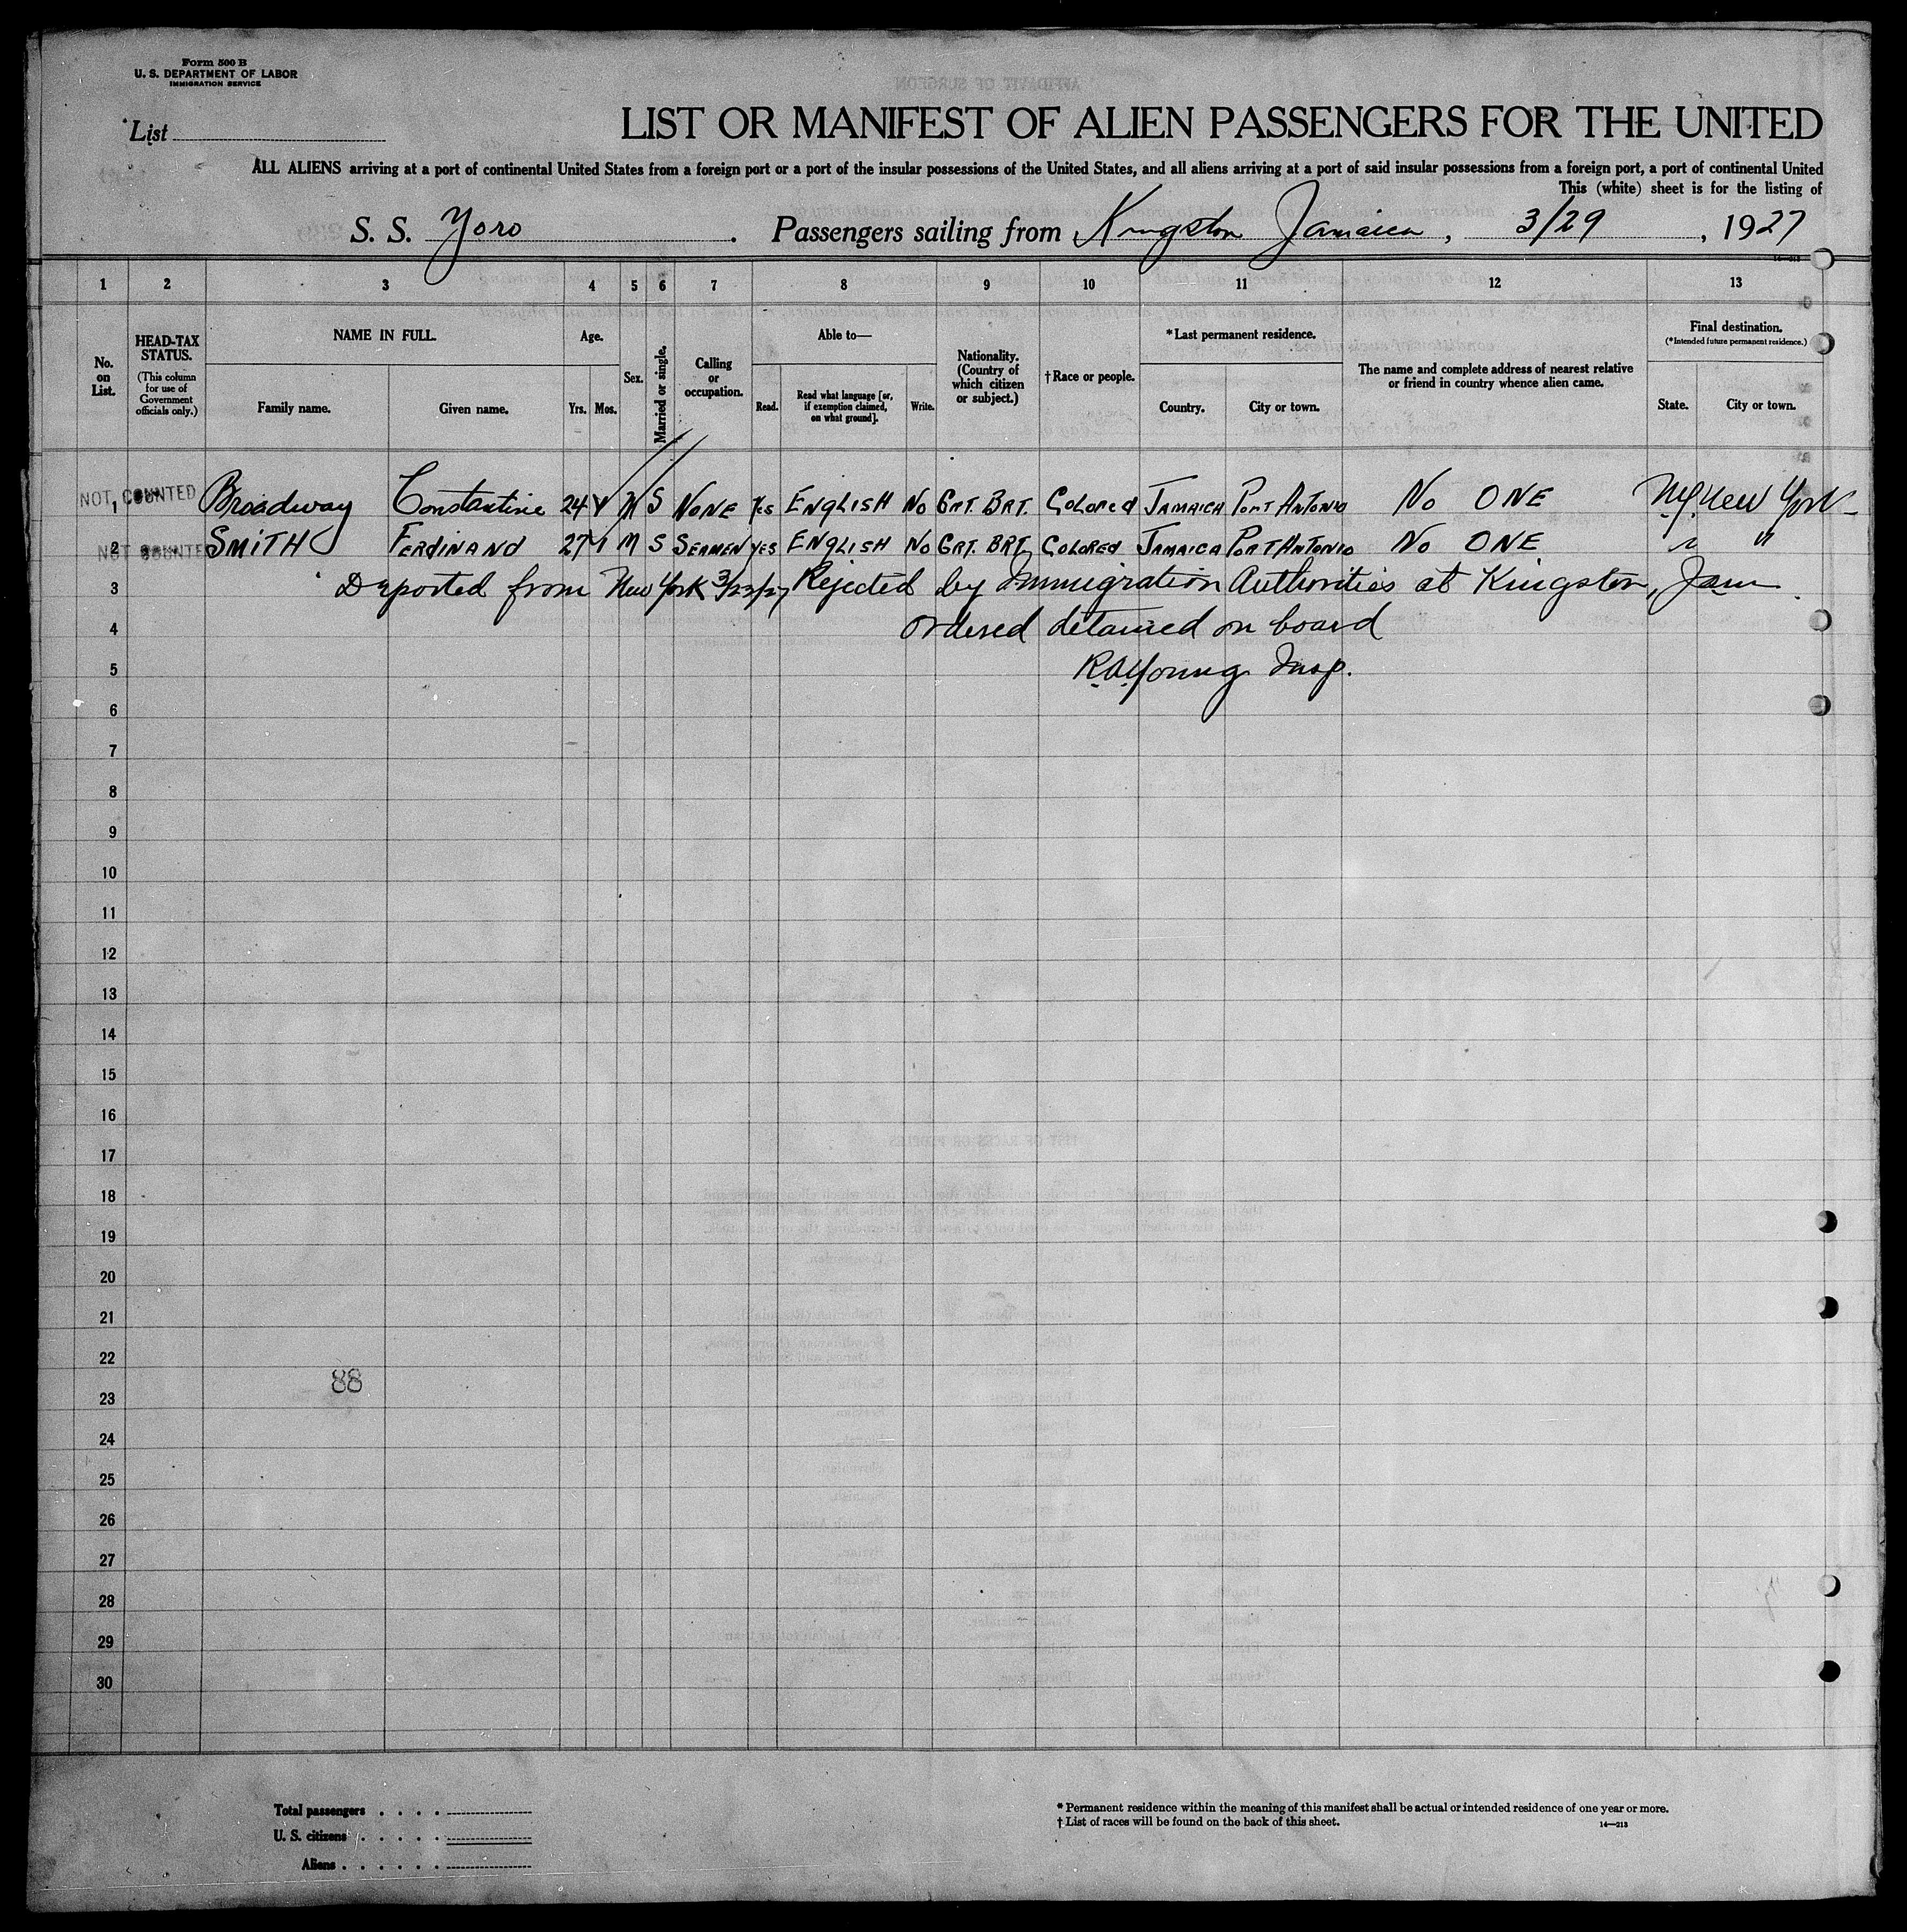 Form 500 B
U. S. DEPARTMENT OF LABOR
IMMIGRATION SERVICE
List
LIST OR MANIFEST OF ALIEN PASSENGERS FOR THE UNITED
ALL ALIENS arriving at a port of continental United States from a foreign port or a port of the insular possessions of the United States, and all aliens arriving at a port of said insular possessions from a foreign port, a port of continental United
This (white) sheet is for the listing of
S. S. Yoro. Passengers sailing from Kingston Jamaica, 3/29, 1927
1 2 3 4 5 6 7 8 9 10 11 12 13
No. on List.
HEAD-TAX STATUS.
(This column for use of Government officials only.)
NAME IN FULL.
Family name.
Given name.
Age.
Yrs. Mos.
Sex.
Married or single.
Calling or occupation.
Able to—
Read.
Read what language [or, if exemption claimed, on what ground].
Write.
Nationality. (Country of which citizen or subject.)
†Race or people.
*Last permanent residence.
Country.
City or town.
The name and complete address of nearest relative or friend in country whence alien came.
Final destination.
(*Intended future permanent residence.)
State.
City or town.
1 NOT COUNTED Broadway Constantine 24 M S NONE Yes ENGLISH No GRT. BRT. Colored JAMAICA PORT ANTONIO No ONE N.Y. New York
2 NOT COUNTED SMITH FERDINAND 27 M S SEAMEN YES ENGLISH No GRT. BRT. COLORED JAMAICA PORT ANTONIO No ONE " "
3 Deported from New York 3/22/27 Rejected by Immigration Authorities at Kingston, Jam.
4 ordered detained on board
5 R.A. Young Insp.
6
7
8
9
10
11
12
13
14
15
16
17
18
19
20
21
22
88
23
24
25
26
27
28
29
30
Total passengers . . . .
U. S. citizens . . . . .
Aliens . . . . . .
* Permanent residence within the meaning of this manifest shall be actual or intended residence of one year or more.
† List of races will be found on the back of this sheet.
14—213